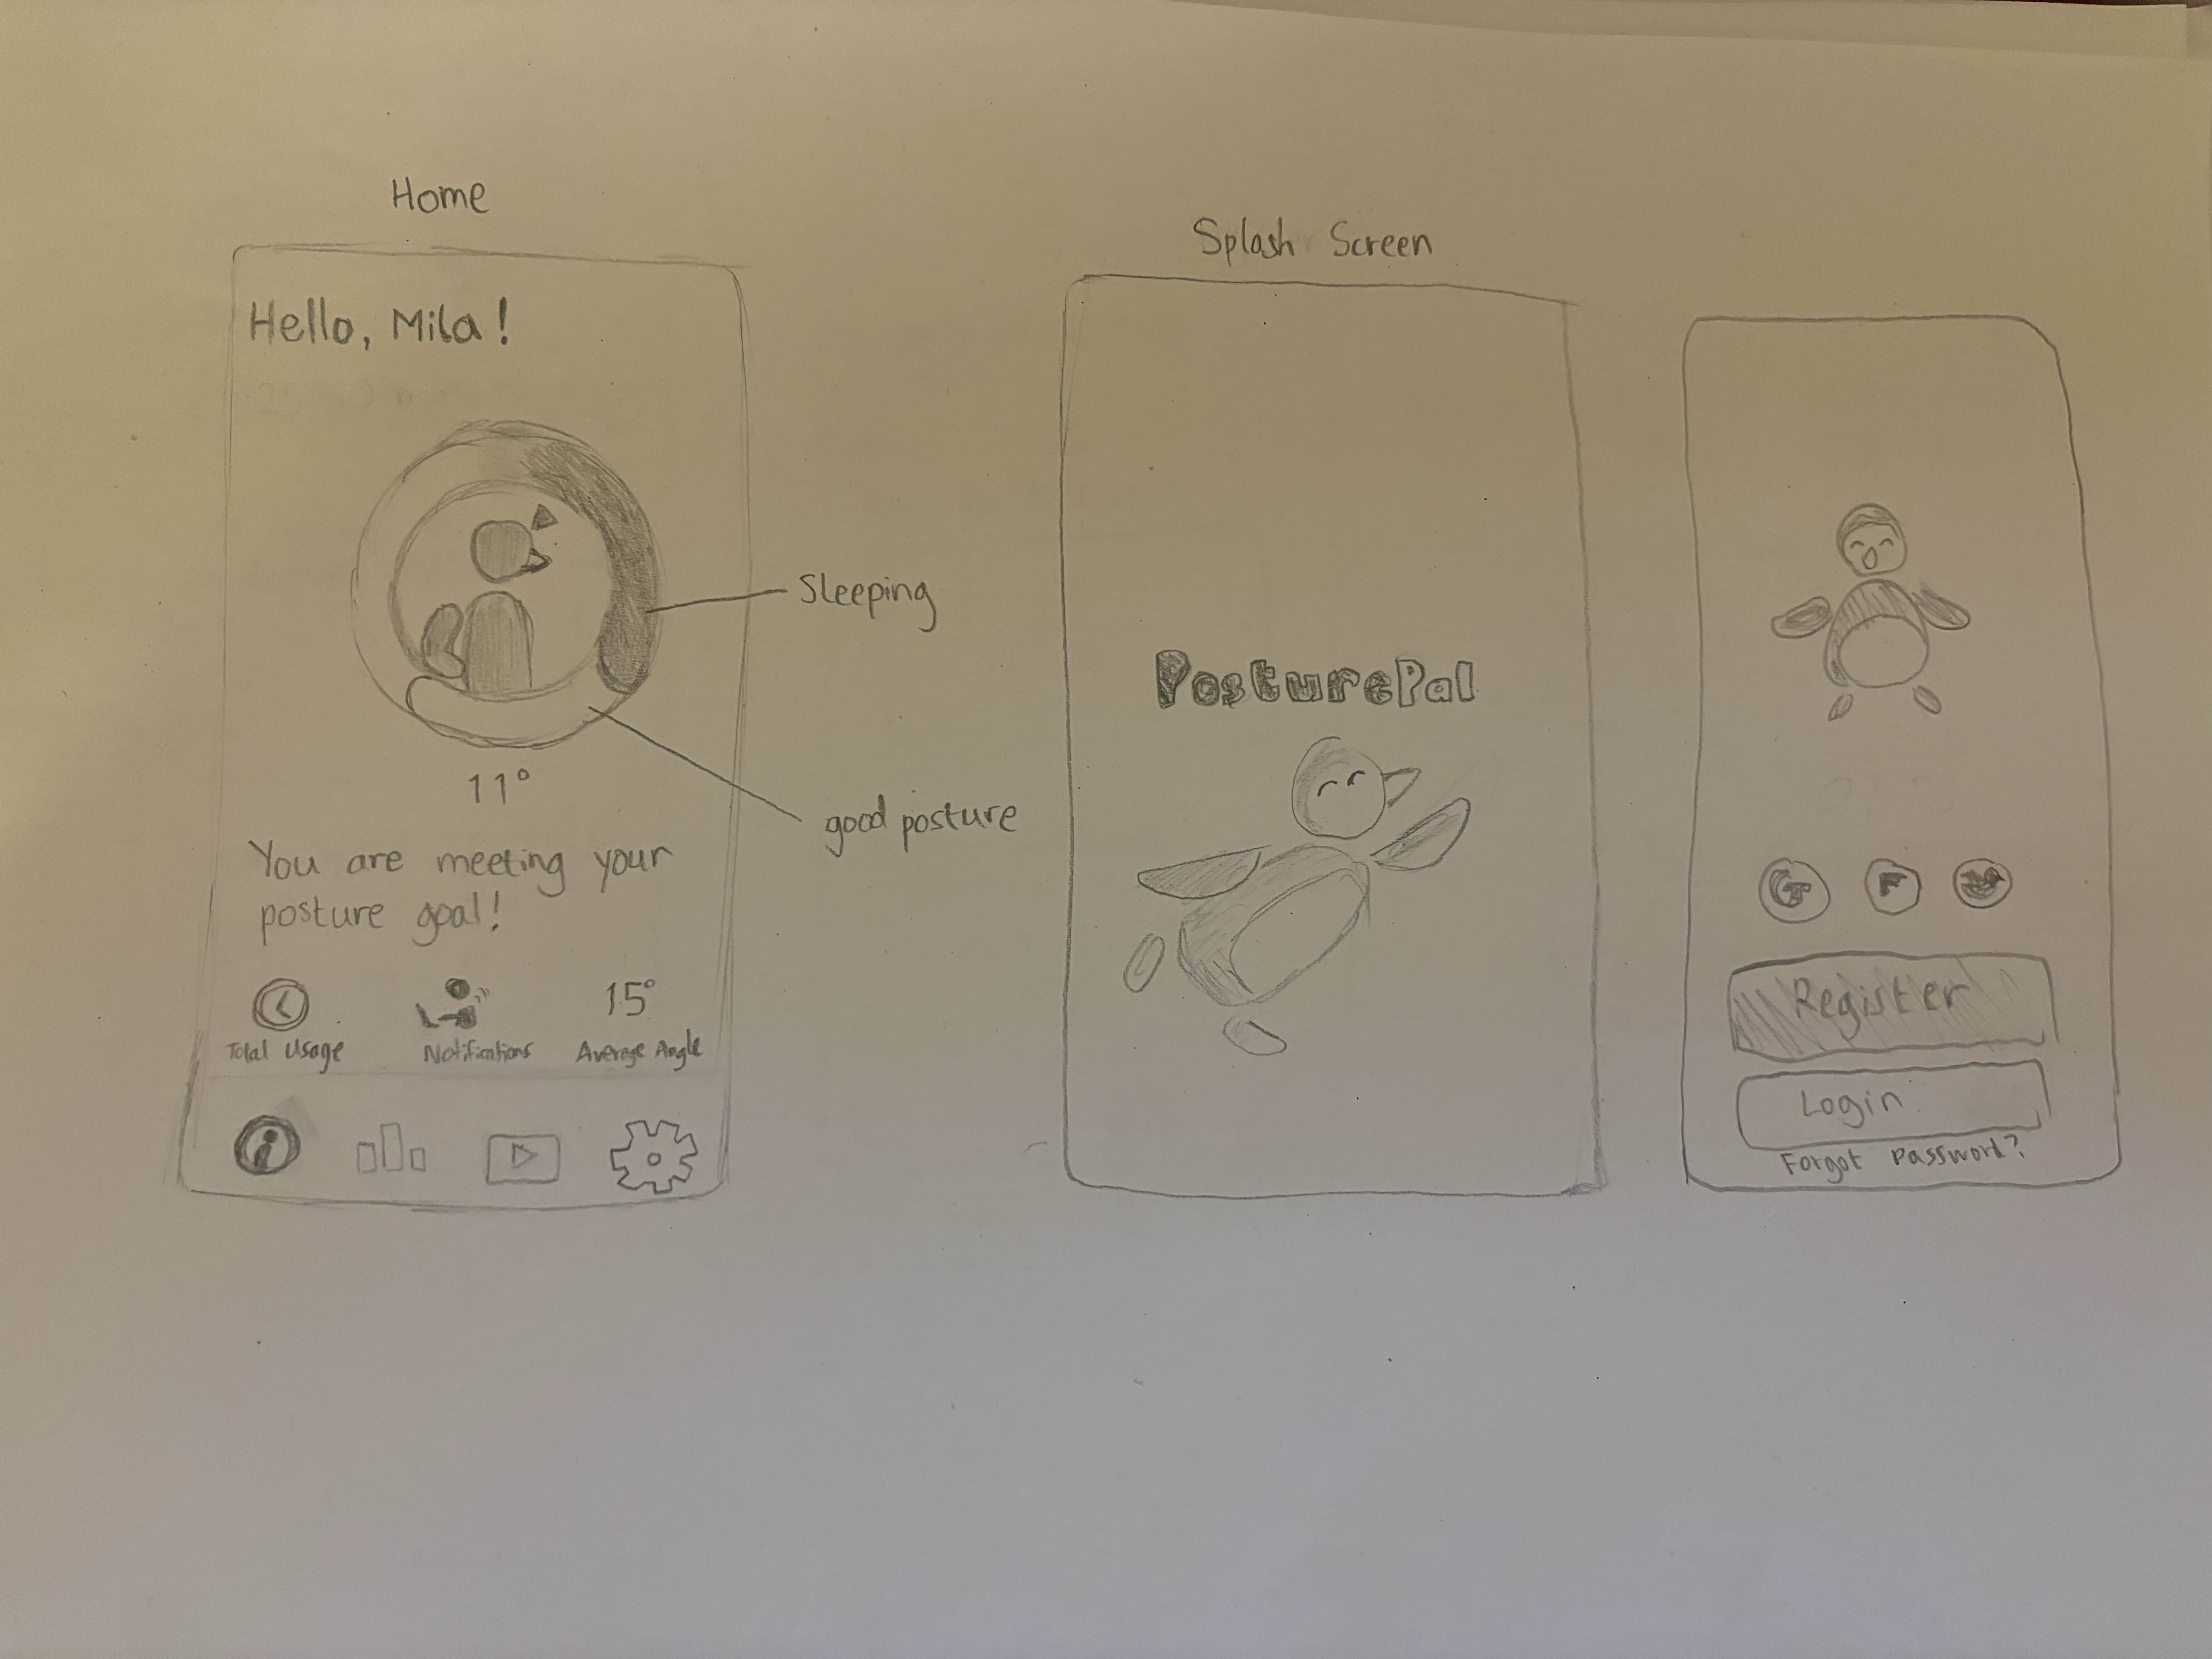 Home
Hello, Mila!
Sleeping
11°
good posture
You are meeting your
posture goal!
15°
Total Usage
Notifications
Average Angle
Splash Screen
PosturePal
G
F
Register
Login
Forgot Password?